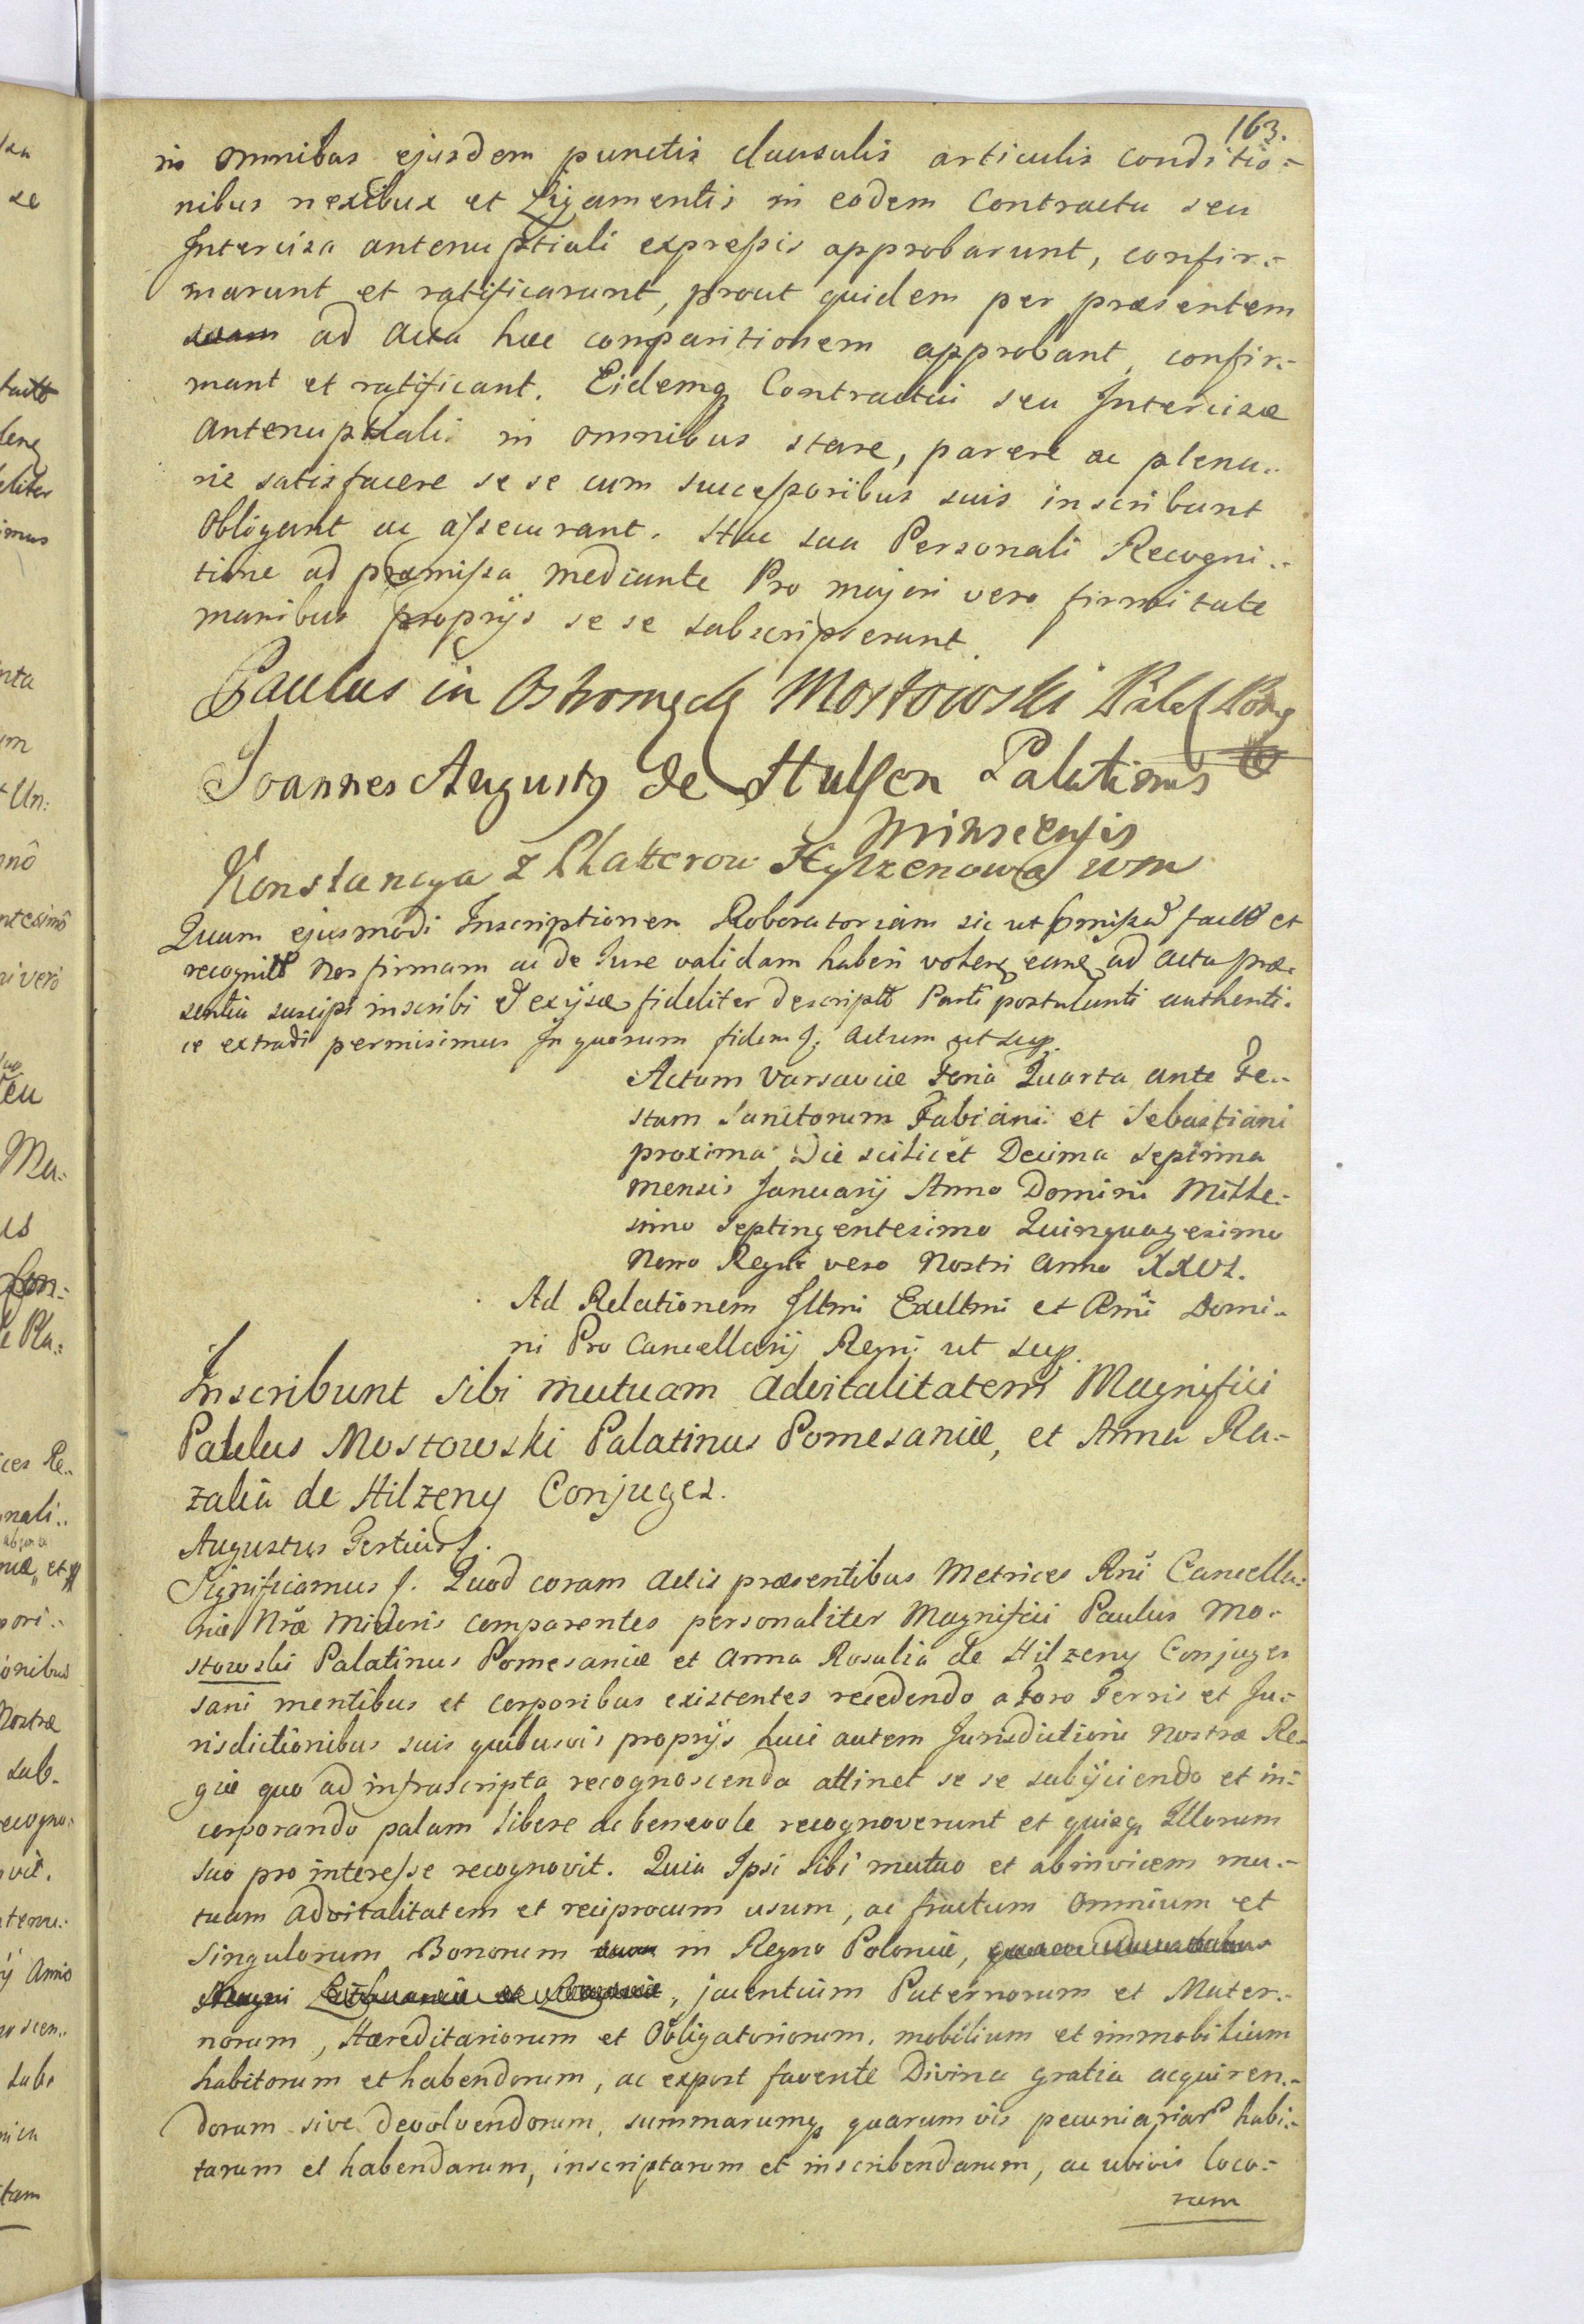 163.
in omnibus ejusdem punctis clausulis articulis conditio:-
nibus nexibus et Ligamentis in eodem Contractu seu
Intercisa antenuptiali expressis approbarunt, confir:-
marunt et ratificarunt, prout quidem per præsentem
suam ad Acta hæc comparitionem approbant, confir:-
mant et ratificant. Eidemq Contractui seu Intercisæ
antenuptiali in omnibus stare, parere ac plena..
rie satisfacere se se cum successoribus suis inscribunt
obligant ac assecurant. Hac sua Personali Recogni:-
tione ad præmissa mediante Pro majori vero firmitate
manibus proprijs se se subscripserunt.
Paulus in Ostromeck Mostowski
Joannes Augustq de Hulsen Palatinus
Minscensis
Konstancya z Platterow Hylzenowa wm
Quam ejusmodi Inscriptionem Roboratoriam sic ut pmissâ factâ et
recognitâ Nos firmam ac de Jure validam haberi volenq eanq ad acta præ-
sentia suscipi inscribi et exijsdē fideliter descriptâ Parti postulanti authenti-
ce extradi permisimus In quorum fidem f. Actum ut sup.
Actum Varsaviæ Feria Quarta ante Fe:-
stum Sanctorum Fabiani et Sebastiani
proxima Die scilicet Decima Septima
mensis Januarij Anno Domini Mille:-
simo Septingentesimo Quinquagesimo
Nono Regni vero Nostri anno XXVI.
Ad Relationem Illmi Exellmi et Rmi Domi:-
ni Pro Cancellarij Regni ut sup.
Inscribunt sibi mutuam advitalitatem Magnifici
Paulus Mostowski Palatinus Pomesaniæ, et Anna Ro-
zalia de Hilzeny Conjuges.
Augustus Tertius f.
Significamus f. Quod coram Actis præsentibus Metrices Rni Cancella:
riæ Nræ Minoris comparentes personaliter Magnifici Paulus Mo-
stowski Palatinus Pomesaniæ et Anna Rosalia de Hilzeny Conjuges
sani mentibus et corporibus existentes recedendo a Foro Terris et Ju:-
risdictionibus suis quibusvis proprijs huic autem Jurisdictioni Nostræ Re-
giæ quo ad infrascripta recognoscenda attinet se se subijciendo et in:-
corporando palam libere ac benevole recognoverunt et quisq Illorum
suo pro interesse recognovit. Quia Ipsi sibi mutuo et abinvicem mu:-
tuam advitalitatem et reciprocum usum, ac fructum omnium et
Singulorum Bonorum in Regno Poloniæ,
Magni Lithuaniæ, jacentium Paternorum et Mater:-
norum, Hæreditariorum et Obligatoriorum, mobilium et immobilium
habitorum et habendorum, ac expost favente Divina gratia acquiren:-
dorum sive devolvendorum, summarumq quarumvis pecuniariar habi:-
tarum et habendarum, inscriptarum et inscribendarum, ac ubivis loco:-
rum